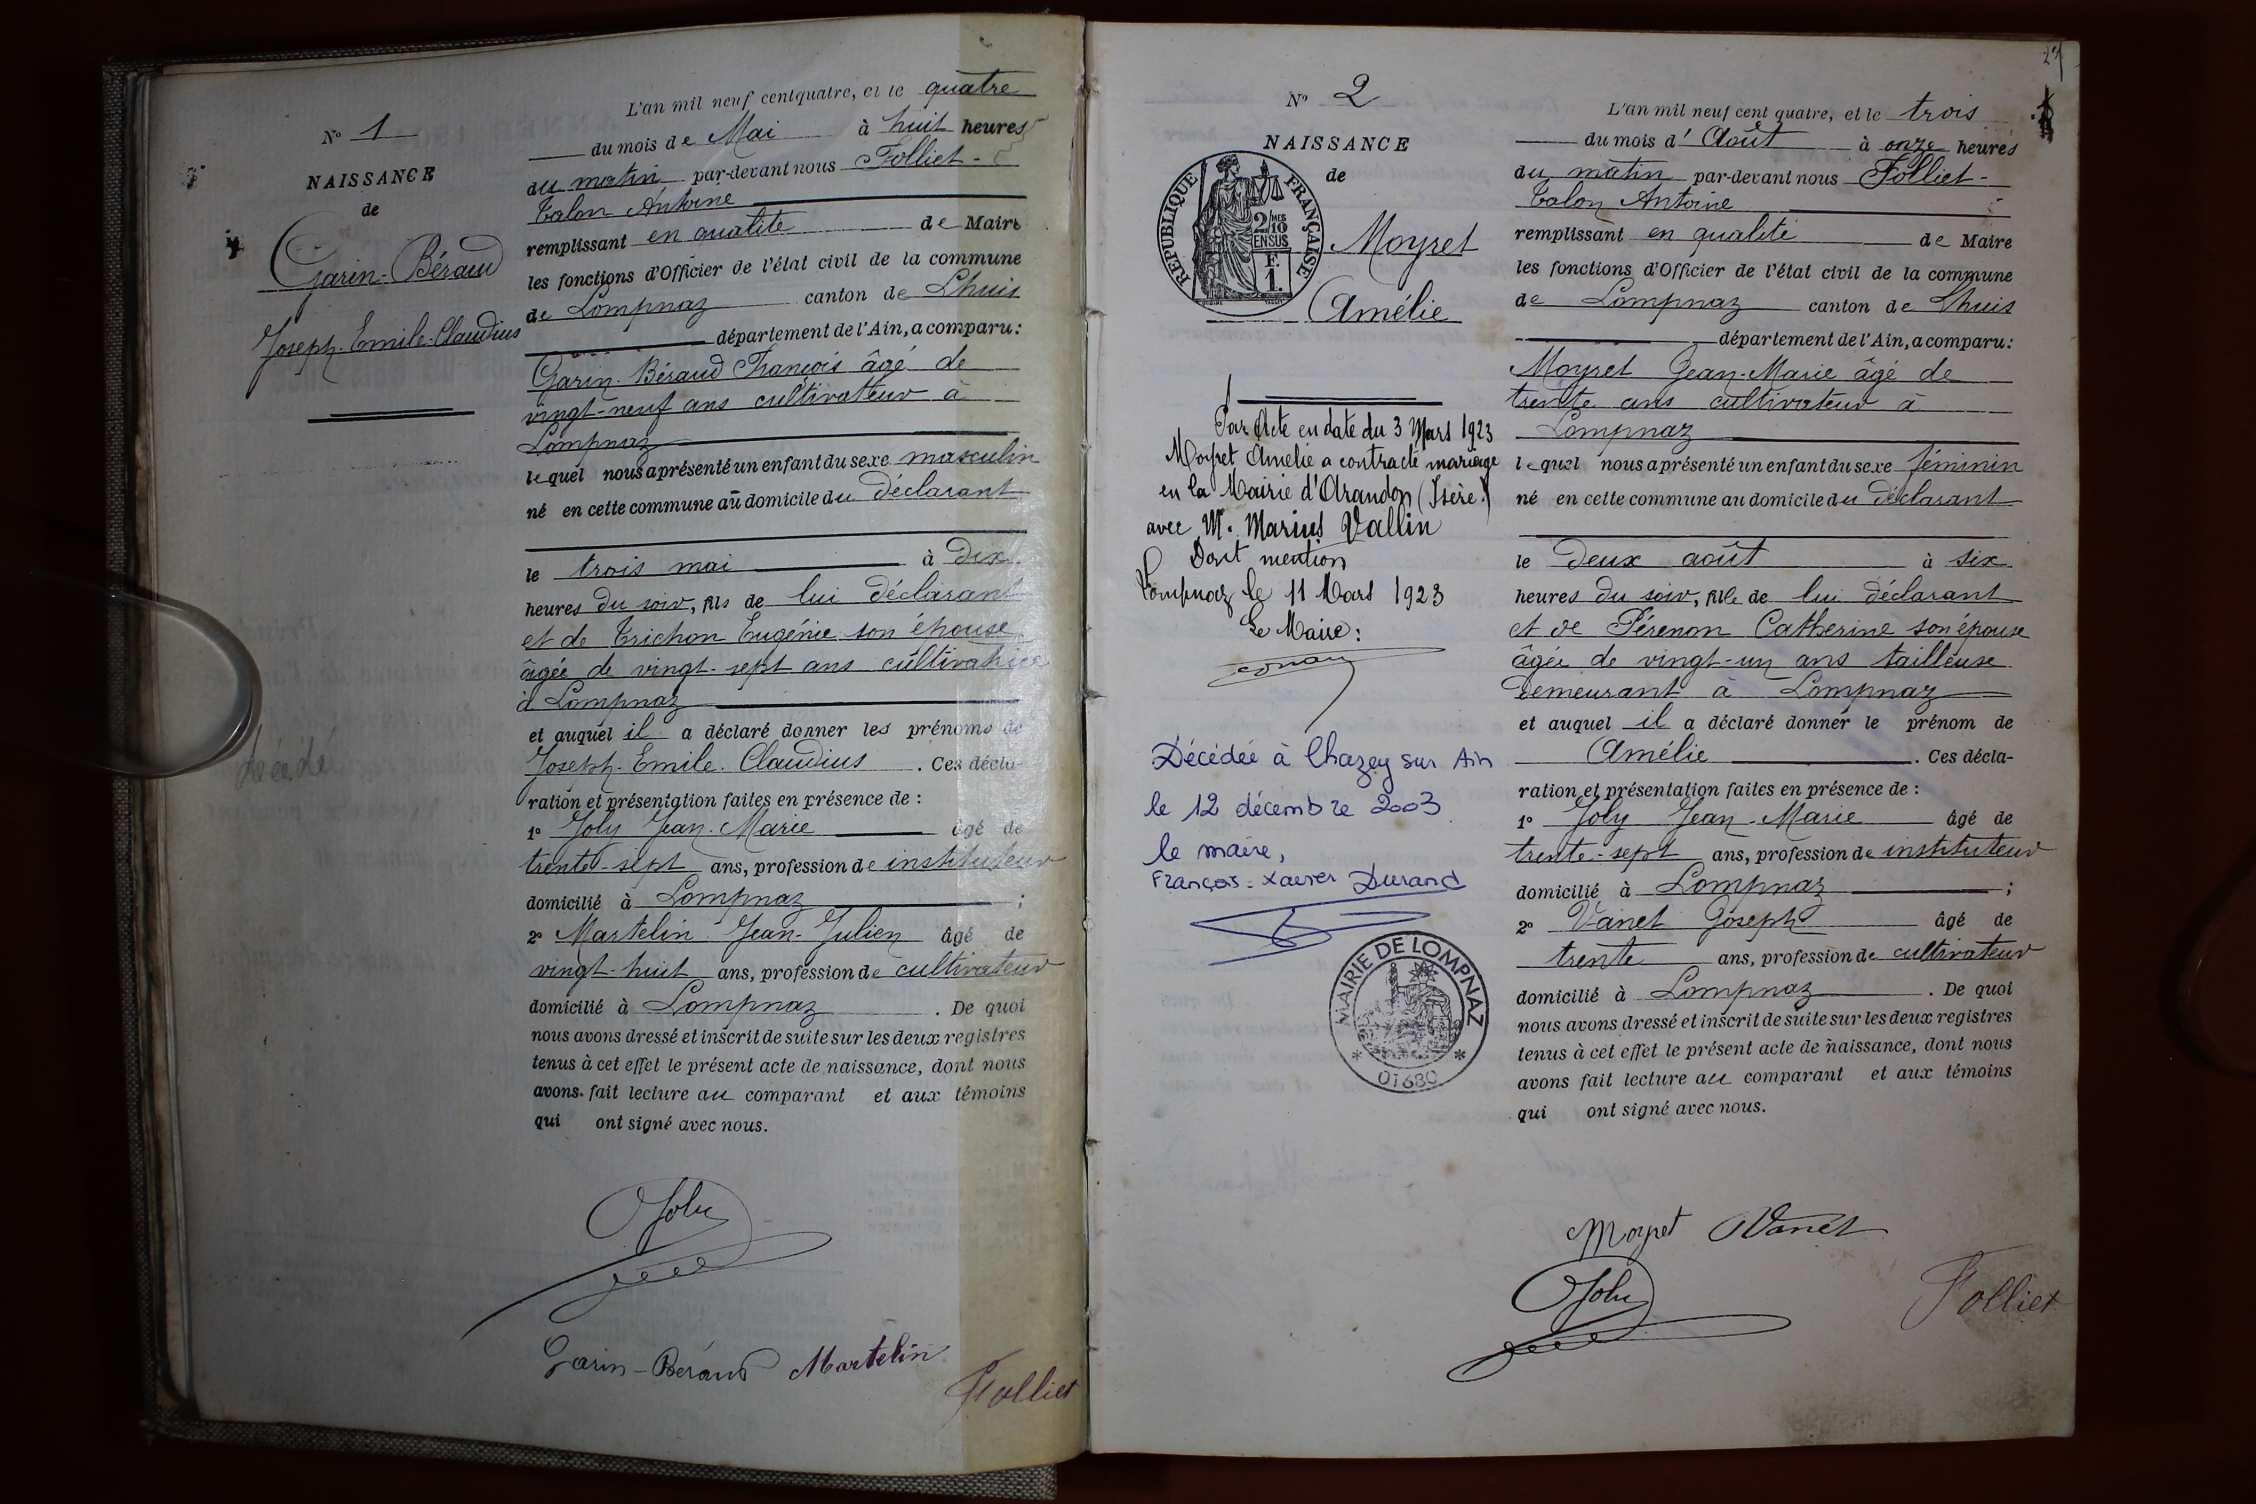 N° 1
NAISSANCE
de
Garin-Béraud
Joseph-Emile-Claudius
décédé
L'an mil neuf cent quatre, et le quatre
du mois de Mai à huit heures
du matin par-devant nous Folliet-
Talon Antoine
remplissant en qualité de Maire
les fonctions d'Officier de l'état civil de la commune
de Lompnaz canton de Lhuis
département de l'Ain, a comparu:
Garin-Béraud François âgé de
vingt-neuf ans cultivateur à
Lompnaz
lequel nous a présenté un enfant du sexe masculin
né en cette commune au domicile du déclarant
le trois mai à dix
heures du soir, fils de lui déclarant
et de Trichon Eugénie son épouse
âgée de vingt-sept ans cultivatrice
à Lompnaz
et auquel il a déclaré donner les prénoms de
Joseph-Emile-Claudius. Ces décla-
ration et présentation faites en présence de :
1° Joly Jean-Marie âgé de
trente-sept ans, profession de instituteur
domicilié à Lompnaz ;
2° Martelin Jean-Julien âgé de
vingt-huit ans, profession de cultivateur
domicilié à Lompnaz. De quoi
nous avons dressé et inscrit de suite sur les deux registres
tenus à cet effet le présent acte de naissance, dont nous
avons fait lecture au comparant et aux témoins
qui ont signé avec nous.
Joly
Garin-Béraud Martelin
Folliet
N° 2
NAISSANCE
de
REPUBLIQUE FRANÇAISE
2/10 MES
EN SUS
F.
1.
Moyret
Amélie
Par Acte en date du 3 Mars 1923
Moyret Amélie a contracté mariage
en la Mairie d'Arandon (Isère)
avec M. Marius Vallin
Dont mention
Lompnaz le 11 Mars 1923
Le Maire:
Décédée à Chazey sur Ain
le 12 décembre 2003
le maire,
François-Xavier Durand
MAIRIE DE LOMPNAZ
* 01680 *
L'an mil neuf cent quatre, et le trois
du mois d'Août à onze heures
du matin par-devant nous Folliet-
Talon Antoine
remplissant en qualité de Maire
les fonctions d'Officier de l'état civil de la commune
de Lompnaz canton de Lhuis
département de l'Ain, a comparu:
Moyret Jean-Marie âgé de
trente ans cultivateur à
Lompnaz
lequel nous a présenté un enfant du sexe féminin
né en cette commune au domicile du déclarant
le deux août à six
heures du soir, fille de lui déclarant
et de Pérenon Catherine son épouse
âgée de vingt-un ans tailleuse
demeurant à Lompnaz
et auquel il a déclaré donner le prénom de
Amélie. Ces décla-
ration et présentation faites en présence de :
1° Joly Jean-Marie âgé de
trente-sept ans, profession de instituteur
domicilié à Lompnaz ;
2° Vanet Joseph âgé de
trente ans, profession de cultivateur
domicilié à Lompnaz. De quoi
nous avons dressé et inscrit de suite sur les deux registres
tenus à cet effet le présent acte de naissance, dont nous
avons fait lecture au comparant et aux témoins
qui ont signé avec nous.
Moyret Vanet
Joly
Folliet